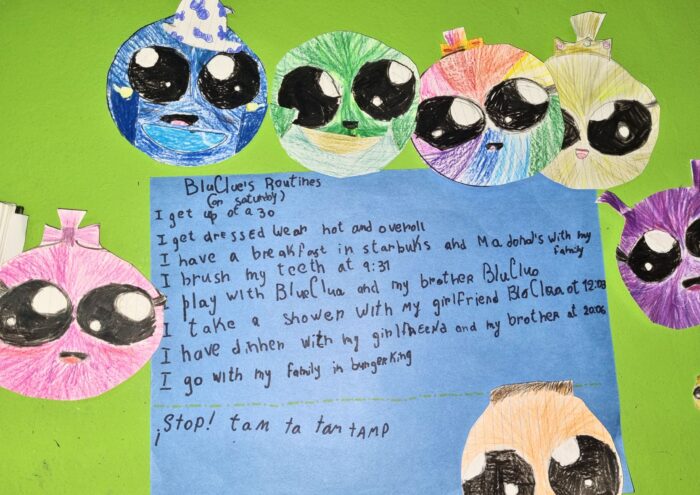 BluClue's Routines
(on saturday)
I get up at a 30
I get dressed wear hot and overoll
I have a breakfast in starbuks and Ma.donal's with my family
I brush my teeth at 9:31
I play with BlueClua and my brother BluCluo
I take a shower with my girlfriend BloClaa at 12:03
I have dinner with my girlfreend and my brother at 20:06
I go with my family in burgerking
¡Stop! tam ta tam tAMP